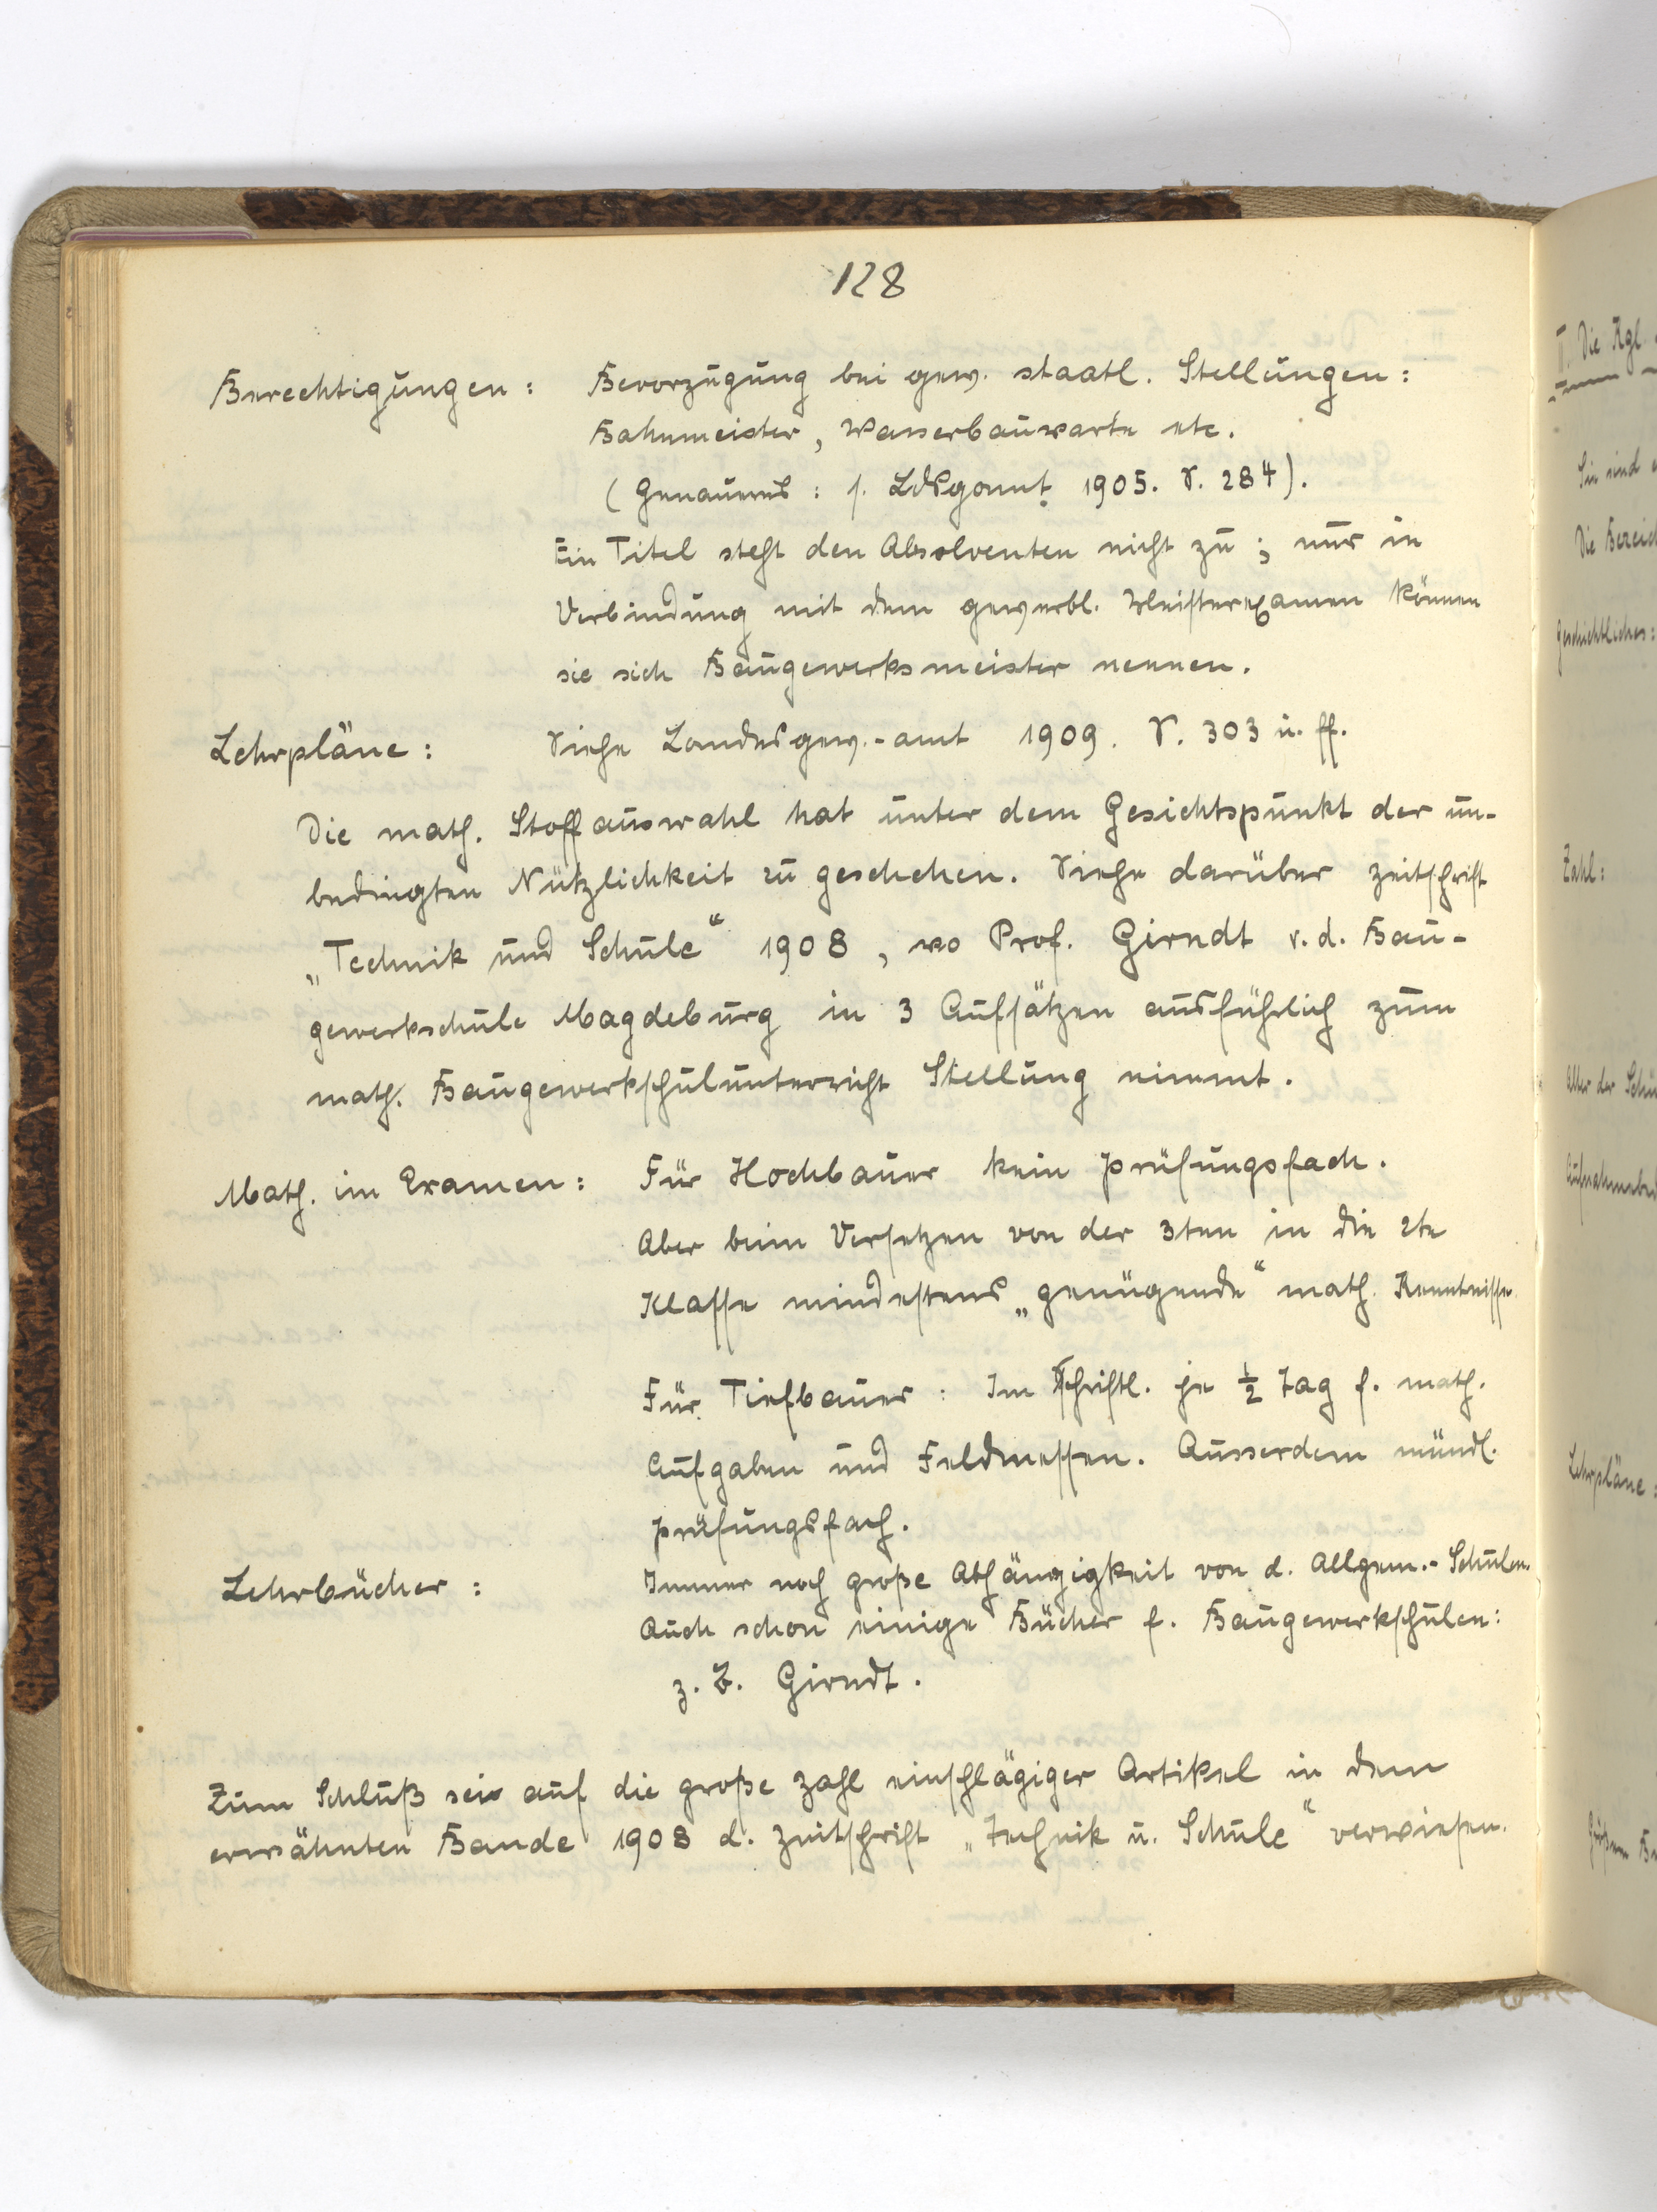 128
Berechtigungen: Bevorzugung bei gew. staatl. Stellungen:
Bahnmeister, Wasserbauwarte etc.
(Genaueres: s. Ldsgamt. 1905. S. 284).
Ein Titel steht den Absolventen nicht zu; nur in
Verbindung mit dem gewerbl. Meisterexamen können
sie sich Baugewerksmeister nennen.
Lehrpläne: Siehe Landesgew.-amt 1909. S. 303 u. ff.
Die math. Stoffauswahl hat unter dem Gesichtspunkt der un-
bedingten Nützlichkeit zu geschehen. Siehe darüber Zeitschrift
„Technik und Schule“ 1908, wo Prof. Girndt v. d. Bau-
gewerkschule Magdeburg in 3 Aufsätzen ausführlich zum
math. Baugewerkschulunterricht Stellung nimmt.
Math. im Examen: Für Hochbauer kein Prüfungsfach.
Aber beim Versetzen von der 3ten in die 2te
Klasse mindestens „genügende“ math. Kenntnisse.
Für Tiefbauer: Im schriftl. je ½ Tag f. math.
Aufgaben und Feldmessen. Ausserdem mündl.
Prüfungsfach.
Lehrbücher: Immer noch große Abhängigkeit von d. Allgem.-Schulen.
Auch schon einige Bücher f. Baugewerkschulen:
z. B. Girndt.
Zum Schluß sei auf die große Zahl einschlägiger Artikel in dem
erwähnten Bande 1908 d. Zeitschrift „Technik u. Schule“ verwiesen.
II. Die Kgl.
Sie sind
Die
Geschichtliches:
Zahl:
Alter der
Lehrpläne: